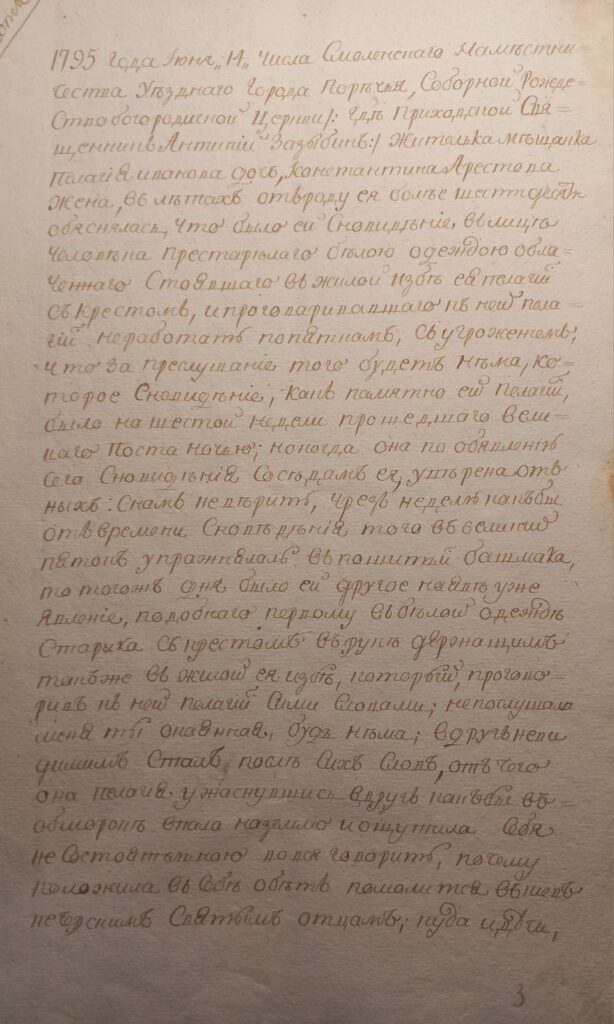 1795 года Іюня „14„ числа Смоленскаго Намѣстни=
чества Уѣзднаго Города Порѣчья, Соборной Рожде=
ствобогородиской Церкви /: гдѣ Приходской Свя=
щенникъ Антипій Зазыбинъ :/ жителька мѣщанка
Пелагія иванова дочь, Константина Арестова
жена, въ лѣтахъ отъроду ея болѣе шести
обяснялась, что было ей Сновидѣніе, въ лицѣ
человѣка престарѣлаго бѣлою одеждою обла=
ченнаго Стоявшаго въ жилой избѣ ея пелагіи
съ Крестомъ, и проговаривавшаго къ ней пела=
гіи неработать попяткамъ, съ угроженіемъ,
что за преслушаніе того будетъ нѣма, ко=
торое Сновидѣніе, какъ памятно ей Пелагіи,
было на шестой недели прошедшаго вели=
каго Поста ночью; но когда она по обявленіи
сего Сновидѣнія Сосѣдамъ ея, увѣрена отъ
ныхъ: Снамъ невѣрить, чрезъ неделю какъбы
отъ времени Сновѣдѣнія того въ великій
пятокъ упражнялась въ пошитьи башмака,
то тогожъ дня было ей другое наявѣ уже
явленіе, подобнаго первому въ бѣлой одеждѣ
Старика съ крестомъ въ рукѣ держащимъ
такъже въ жилой ея избѣ, который, прогово=
рилъ къ ней пелагіи Сими Словами; непослушала
меня ты окаянная, будь нѣма; вдругъ неви
димимъ Сталъ, послѣ Сихъ Словъ, отъ чего
она пелагія ужаснувшись вдругъ какъбы въ=
обморокъ впала наземлю и ощутила Себя
не Состоятельною вовся говорить, почему
положила въ Себѣ обѣтъ помолится въ кіевъ
печорскимъ Святымъ отцамъ; куда идучи,
3